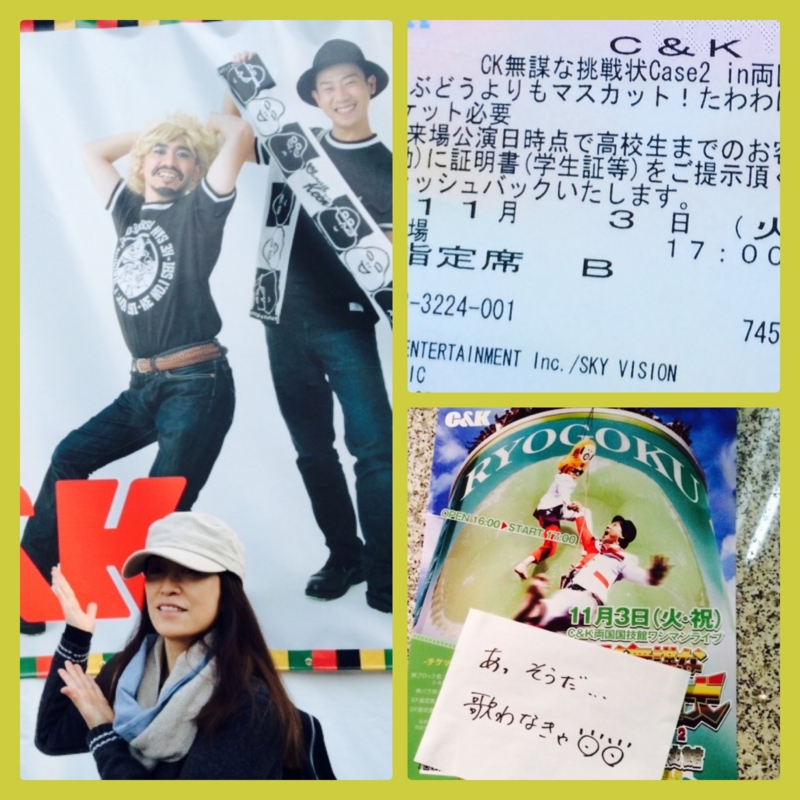 K
C&K
CK無謀な挑戦状Case2 in両
ぶどうよりもマスカット!たわわ
ケット必要
来場公演日時点で高校生までのお
に証明書(学生証等)をご提示頂
ッシュバックいたします。
11月 3日 (火
場 17:00
指定席 B
-3224-001
745
ENTERTAINMENT Inc./SKY VISION
IC
C&K
RYOGOKU
OPEN 16:00 ▶ START 17:00
11月3日(火・祝)
C&K両国国技館ワンマンライブ
あ、そうだ...
歌わなきゃ